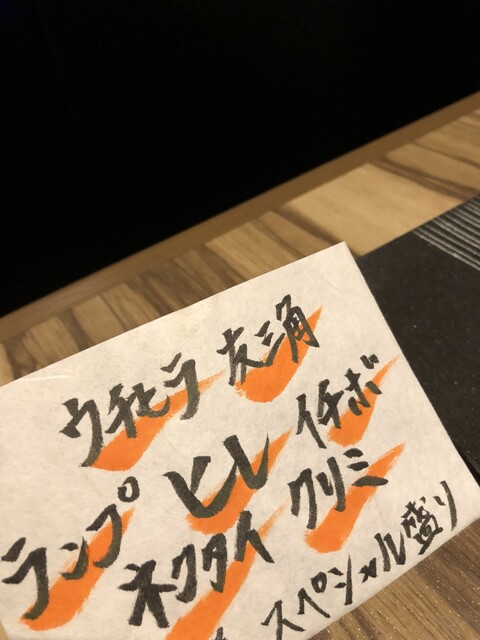 ウチヒラ 友三角
ランプ ヒレ イチボ
ネクタイ クリミ
スペシャル盛り